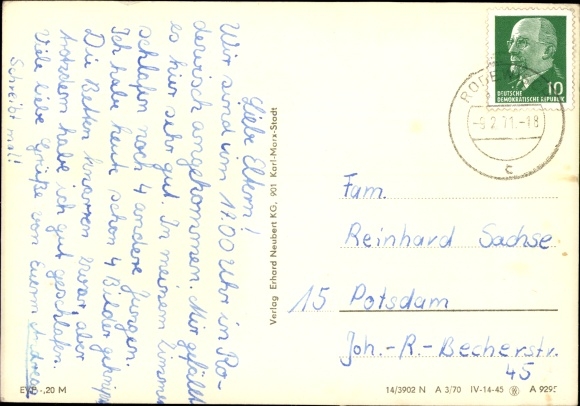 Liebe Eltern!
Wir sind um 11.00 Uhr in Ro-
derisch angekommen. Mir gefällt
es hier sehr gut. In meinem Zimmer
schlafen noch 4 andere Jungen.
Ich habe heute schon 4 Bilder geknipst
Die Betten knarren zwar, aber
trotzdem habe ich gut geschlafen.
Viele liebe Grüße von Euerm Andreas
Schreibt mal!
EVP -,20 M
Verlag Erhard Neubert KG, 901 Karl-Marx-Stadt
10
DEUTSCHE
DEMOKRATISCHE REPUBLIK
-9.2.71.-18
c
Fam.
Reinhard Sachse
15 Potsdam
Joh.-R.-Becherstr.
45
14/3902 N A 3/70 IV-14-45 A 9295